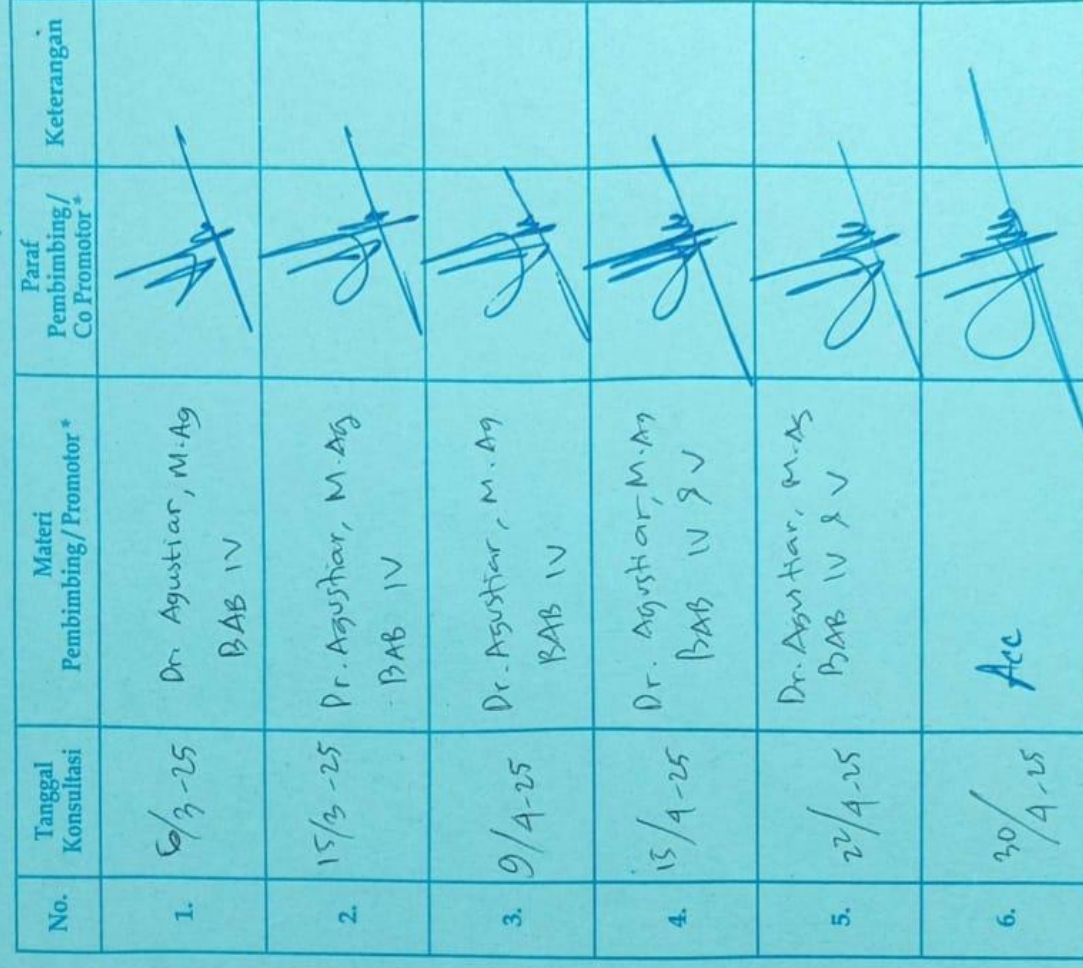 No.
Tanggal
Konsultasi
Materi
Pembimbing / Promotor*
Paraf
Pembimbing /
Co Promotor*
Keterangan
1.
6/3-25
Dr. Agustiar, M.Ag
BAB IV
2.
15/3-25
Dr. Agustiar, M.Ag
BAB IV
3.
9/4-25
Dr. Agustiar, M.Ag
BAB IV
4.
15/4-25
Dr. Agustiar, M.Ag
BAB IV & V
5.
22/4-25
Dr. Agustiar, M.Ag
BAB IV & V
6.
30/4-25
Acc